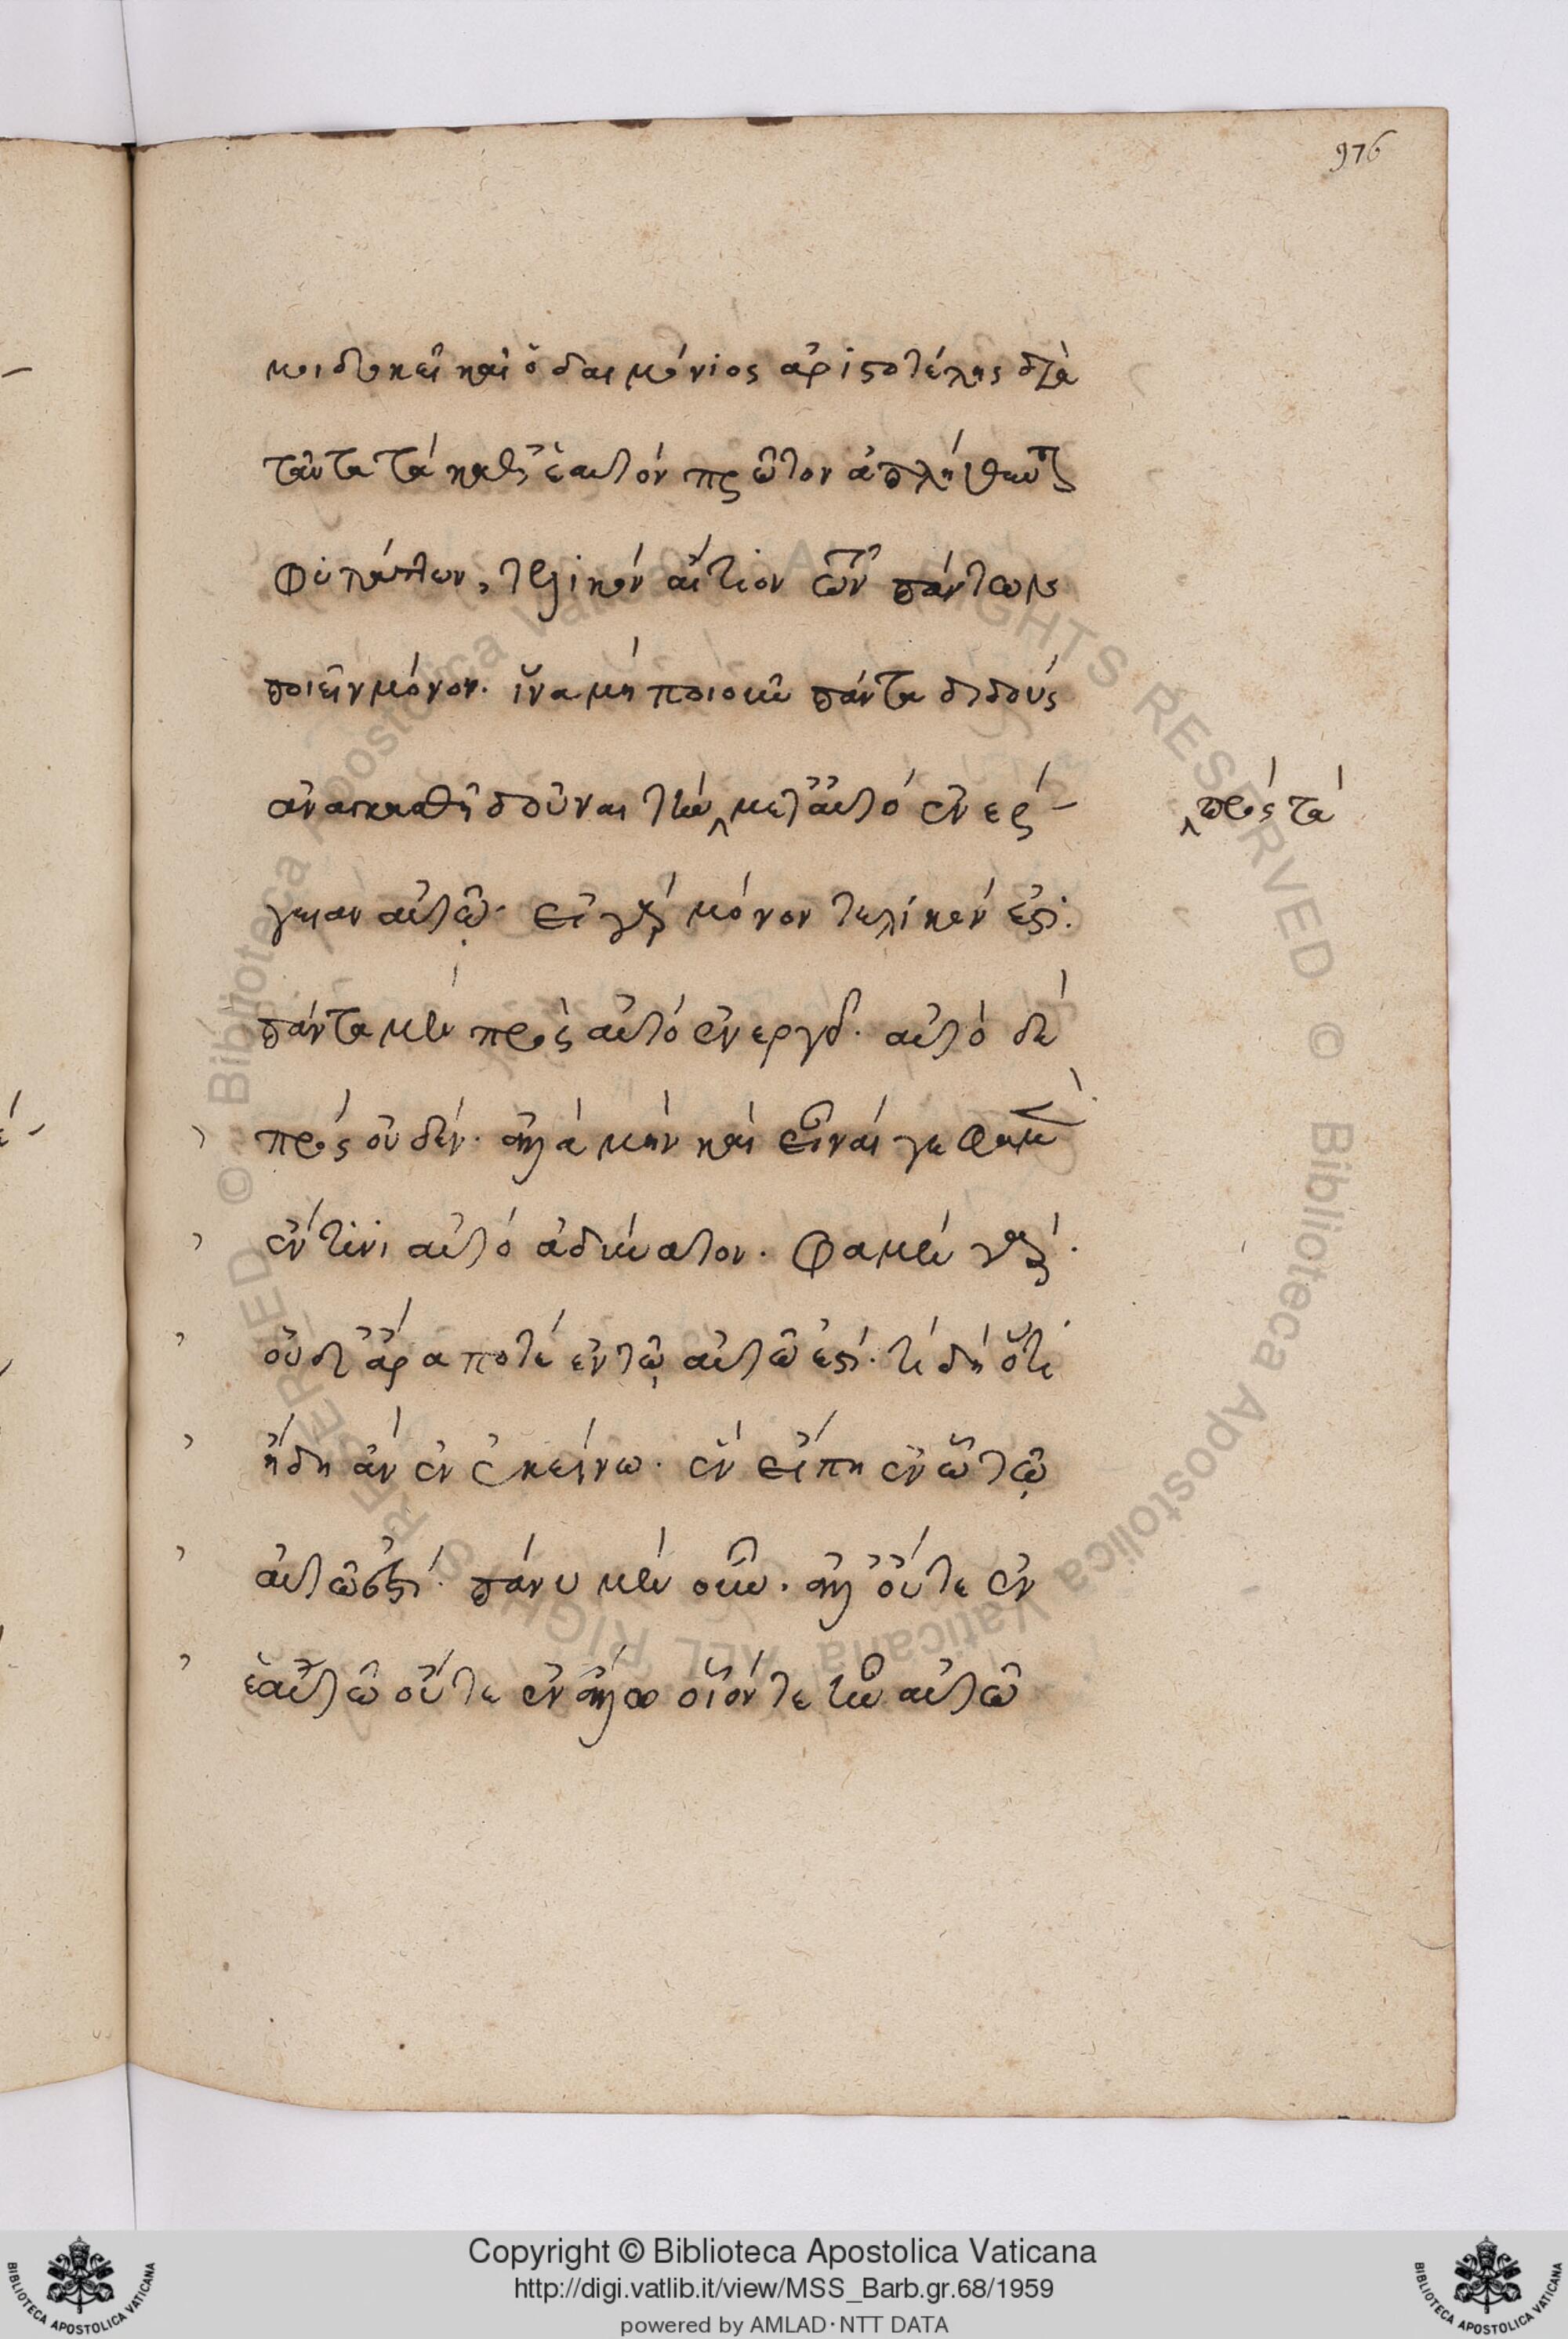 976
μοι δοκεῖ καὶ ὁ δαιμόνιος ἀριστοτέλης διὰ
ταῦτα τὸ καθ' ἑαυτὸν πρῶτον ἀπλήθυντον
φυλάττων, τελικὸν αἴτιον τῶν πάντων
ποιεῖν μόνον. ἵνα μὴ ποιοῦν πάντα διδοὺς
ἀναγκασθῇ δοῦναι τὴν μετ' αὐτὸ ἐνέρ-
πρὸς τὰ
γειαν αὐτῷ. εἰ γὰρ μόνον τελικόν ἐστι.
πάντα μὲν πρὸς αὐτὸ ἐνεργεῖ. αὐτὸ δὲ
πρὸς οὐδέν. ἀλλὰ μὴν καὶ εἶναί γε φαμὲν
ἔν τινι αὐτὸ ἀδύνατον. φαμὲν γάρ.
οὐδ' ἄρα ποτὲ ἐν τῷ αὐτῷ ἐστί. τί δὴ ὅτι
ἤδη ἂν ἐν ἐκείνω. ἐν εἴπη ἐν ᾧ τῷ
αὐτῷ ἐστί. πάνυ μὲν οὖν. ἀλλ' οὔτε ἐν
ἑαυτῷ οὔτε ἐν ἄλλω οἷόν τε ἦν αὐτῷ
Copyright © Biblioteca Apostolica Vaticana
http://digi.vatlib.it/view/MSS_Barb.gr.68/1959
powered by AMLAD·NTT DATA